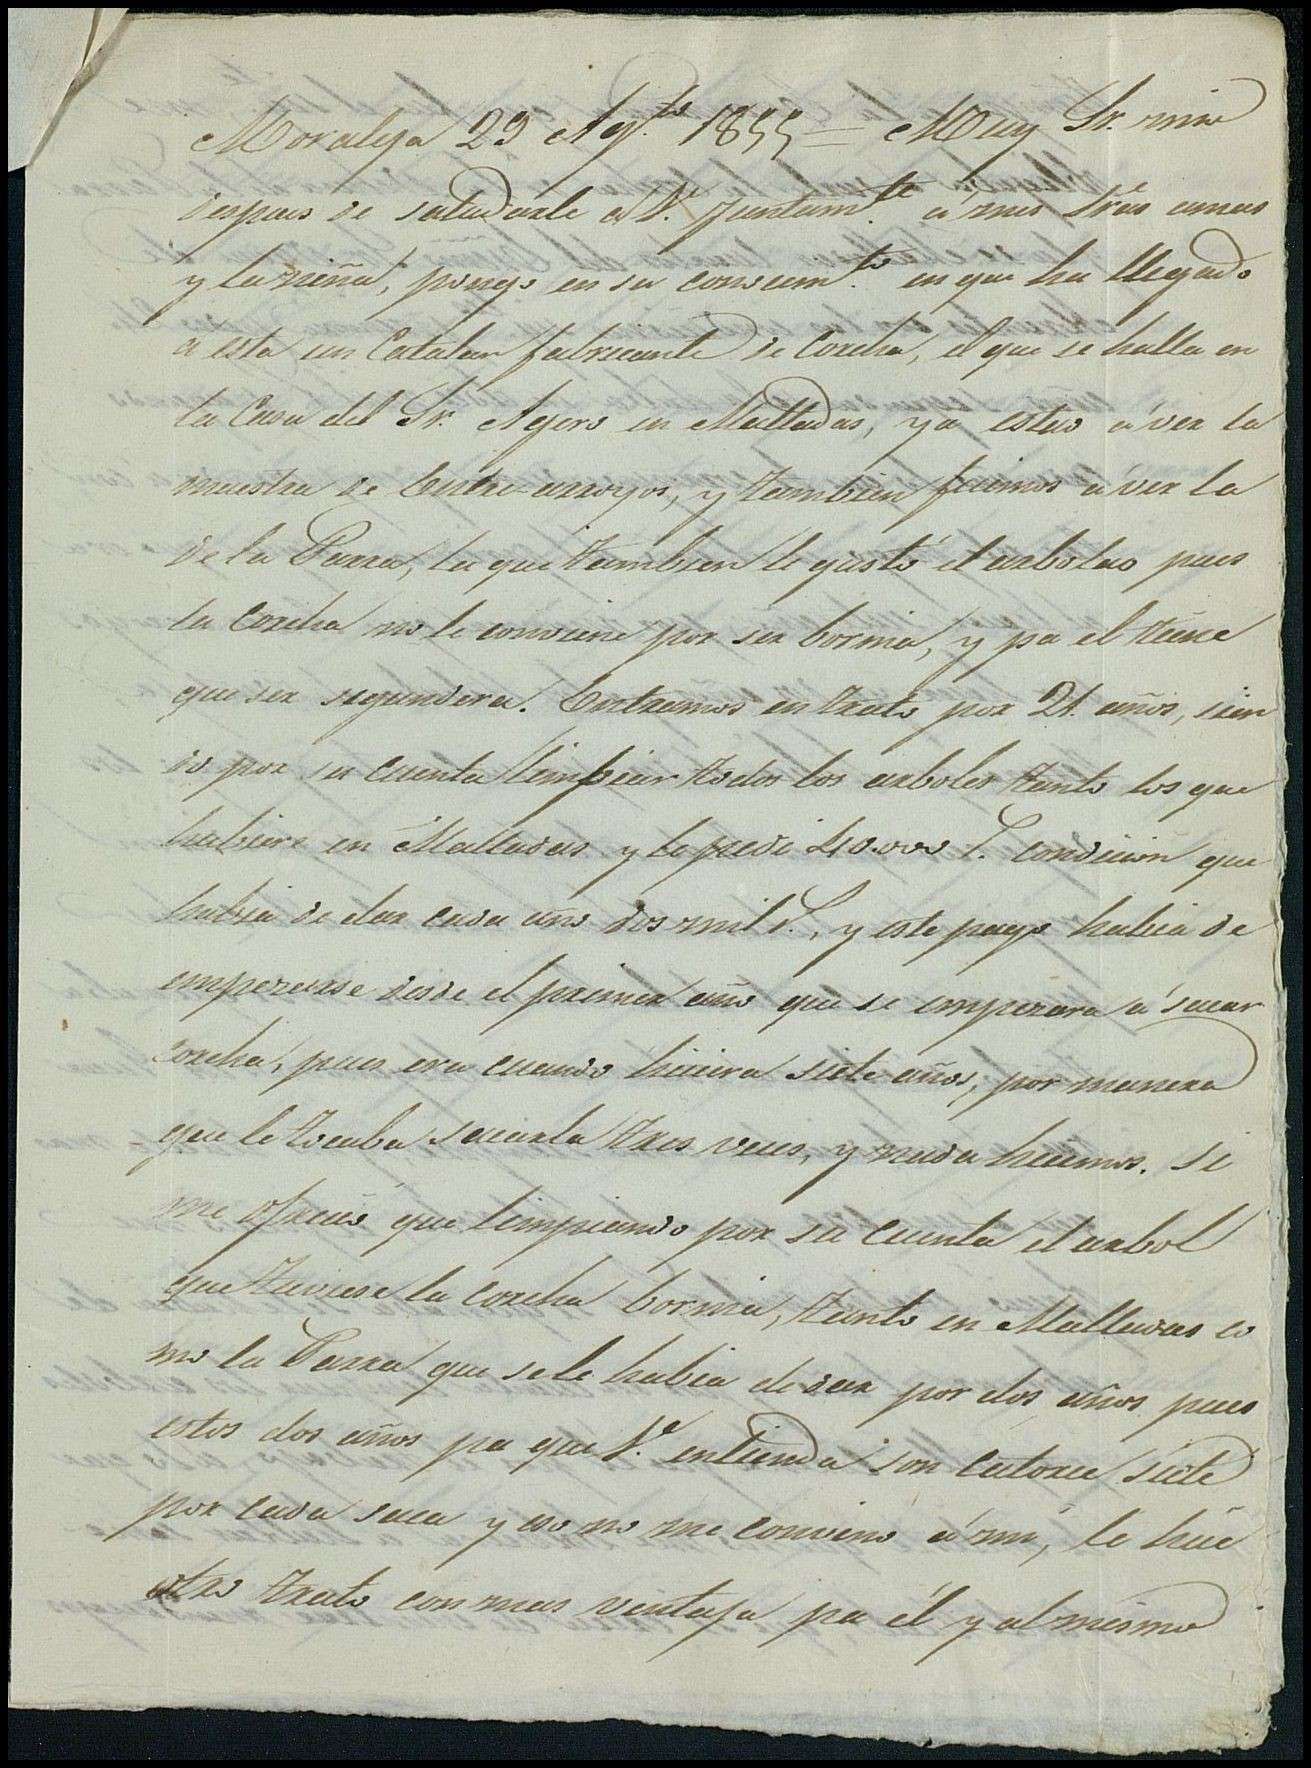 Moraleja 29 Ag.to 1855 = Muy Sr. mio
despues de saludarle á V.e juntam.te á mis Sras amas
y la niña, pongo en su conocim.to en que ha llegado
á esta un Catalan fabricante de Corcha, el que se halla en
la Casa del Sr. Agero en Malladas, ya estuvo á ver la
muestra de Entre-arroyos, y tambien fuimos á ver la
de la Parra, la que tambien le gustó el arbolao pues
la Corcha no le conviene por ser bornia, y pa el tiene
que ser segundera. Entramos en trato por 21 años, sien
do por su cuenta limpiar todos los arboles tanto los que
hubiere en Malladas y le pedi 40.000 r. condicion que
habia de dar cada año dos mil r., y este pago habia de
empezarse desde el primer año que se empezara á sacar
corcha, pues era cuando hiciera siete años, por manera
que le tocaba sacarla tres veces, y nada hicimos. si
me ofreció que limpiando por su cuenta el arbol
que tuviese la corcha bornia, tanto en Malladas co
mo la Parra que se le habia de dar por dos años pues
estos dos años pa que V.e entienda son catorce siete
por cada saca y eso no me convino á mi, le hice
otro trato con mas ventaja pa él y al mismo